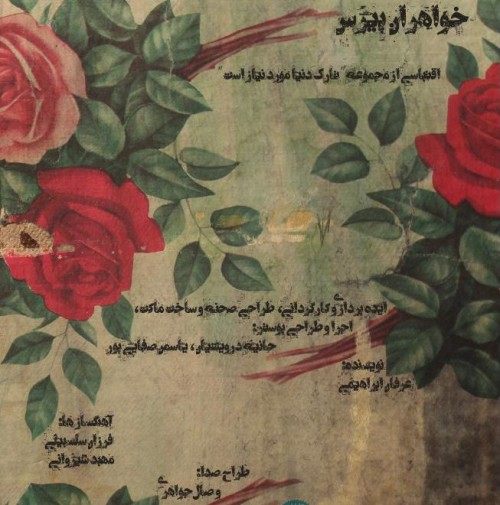 خواهران پیرس
اقتباسی از مجموعه "تارک دنیا مورد نیاز است"
ایده پردازی و کارگردانی، طراحی صحنه و ساخت ماکت،
اجرا و طراحی پوستر:
حانیه درویشیان، یاسمن صفایی پور
نویسنده:
عرفان ابراهیمی
آهنگساز ها:
فرزان سلسبیلی
مهبد شیروانی
طراح صدا:
وصال جواهری